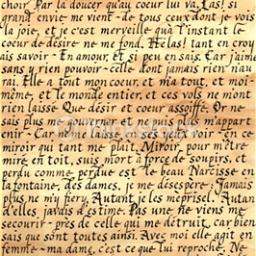 choir. Par la douceur qu'au coeur lui va. Las! si
grand envie me vient de tous ceux dont je vois
la joie, et je c'est merveille qua l'instant le
coeur de desire ne me fond. Helas! tant en croy
ais savoir En amour, et si peu en sais. Car j'aime
sans y rien pouvoir celle dont jamais rien n'au
rai. Elle a tout mon coeur, et m'a tout, et moi-
même, et le monde entier, et ces vols ne m'ont
rien laissé Que désir et coeur assoiffé. Or ne
sais plus me gouverner et ne puis plus m'appart
enir Car ne me laisse en ses yeux voir en ce
miroir qui tant me plait. Miroir, pour m'être
miré en toit, suis mort à force de soupirs, et
perdu comme perdue est le beau Narcisse en
la fontaine, des dames, je me désespère; Jamais
plus ne m'y fierv. Autant je les méprisel. Autan
d'elles javais d'estime. Pas une ne viens me
secourir près de celle qui me détruit, car bien
sais que sont toutes ainsi. Avec moi elle agit en
femme ma dame, c'est ce que lui reproche, Ne